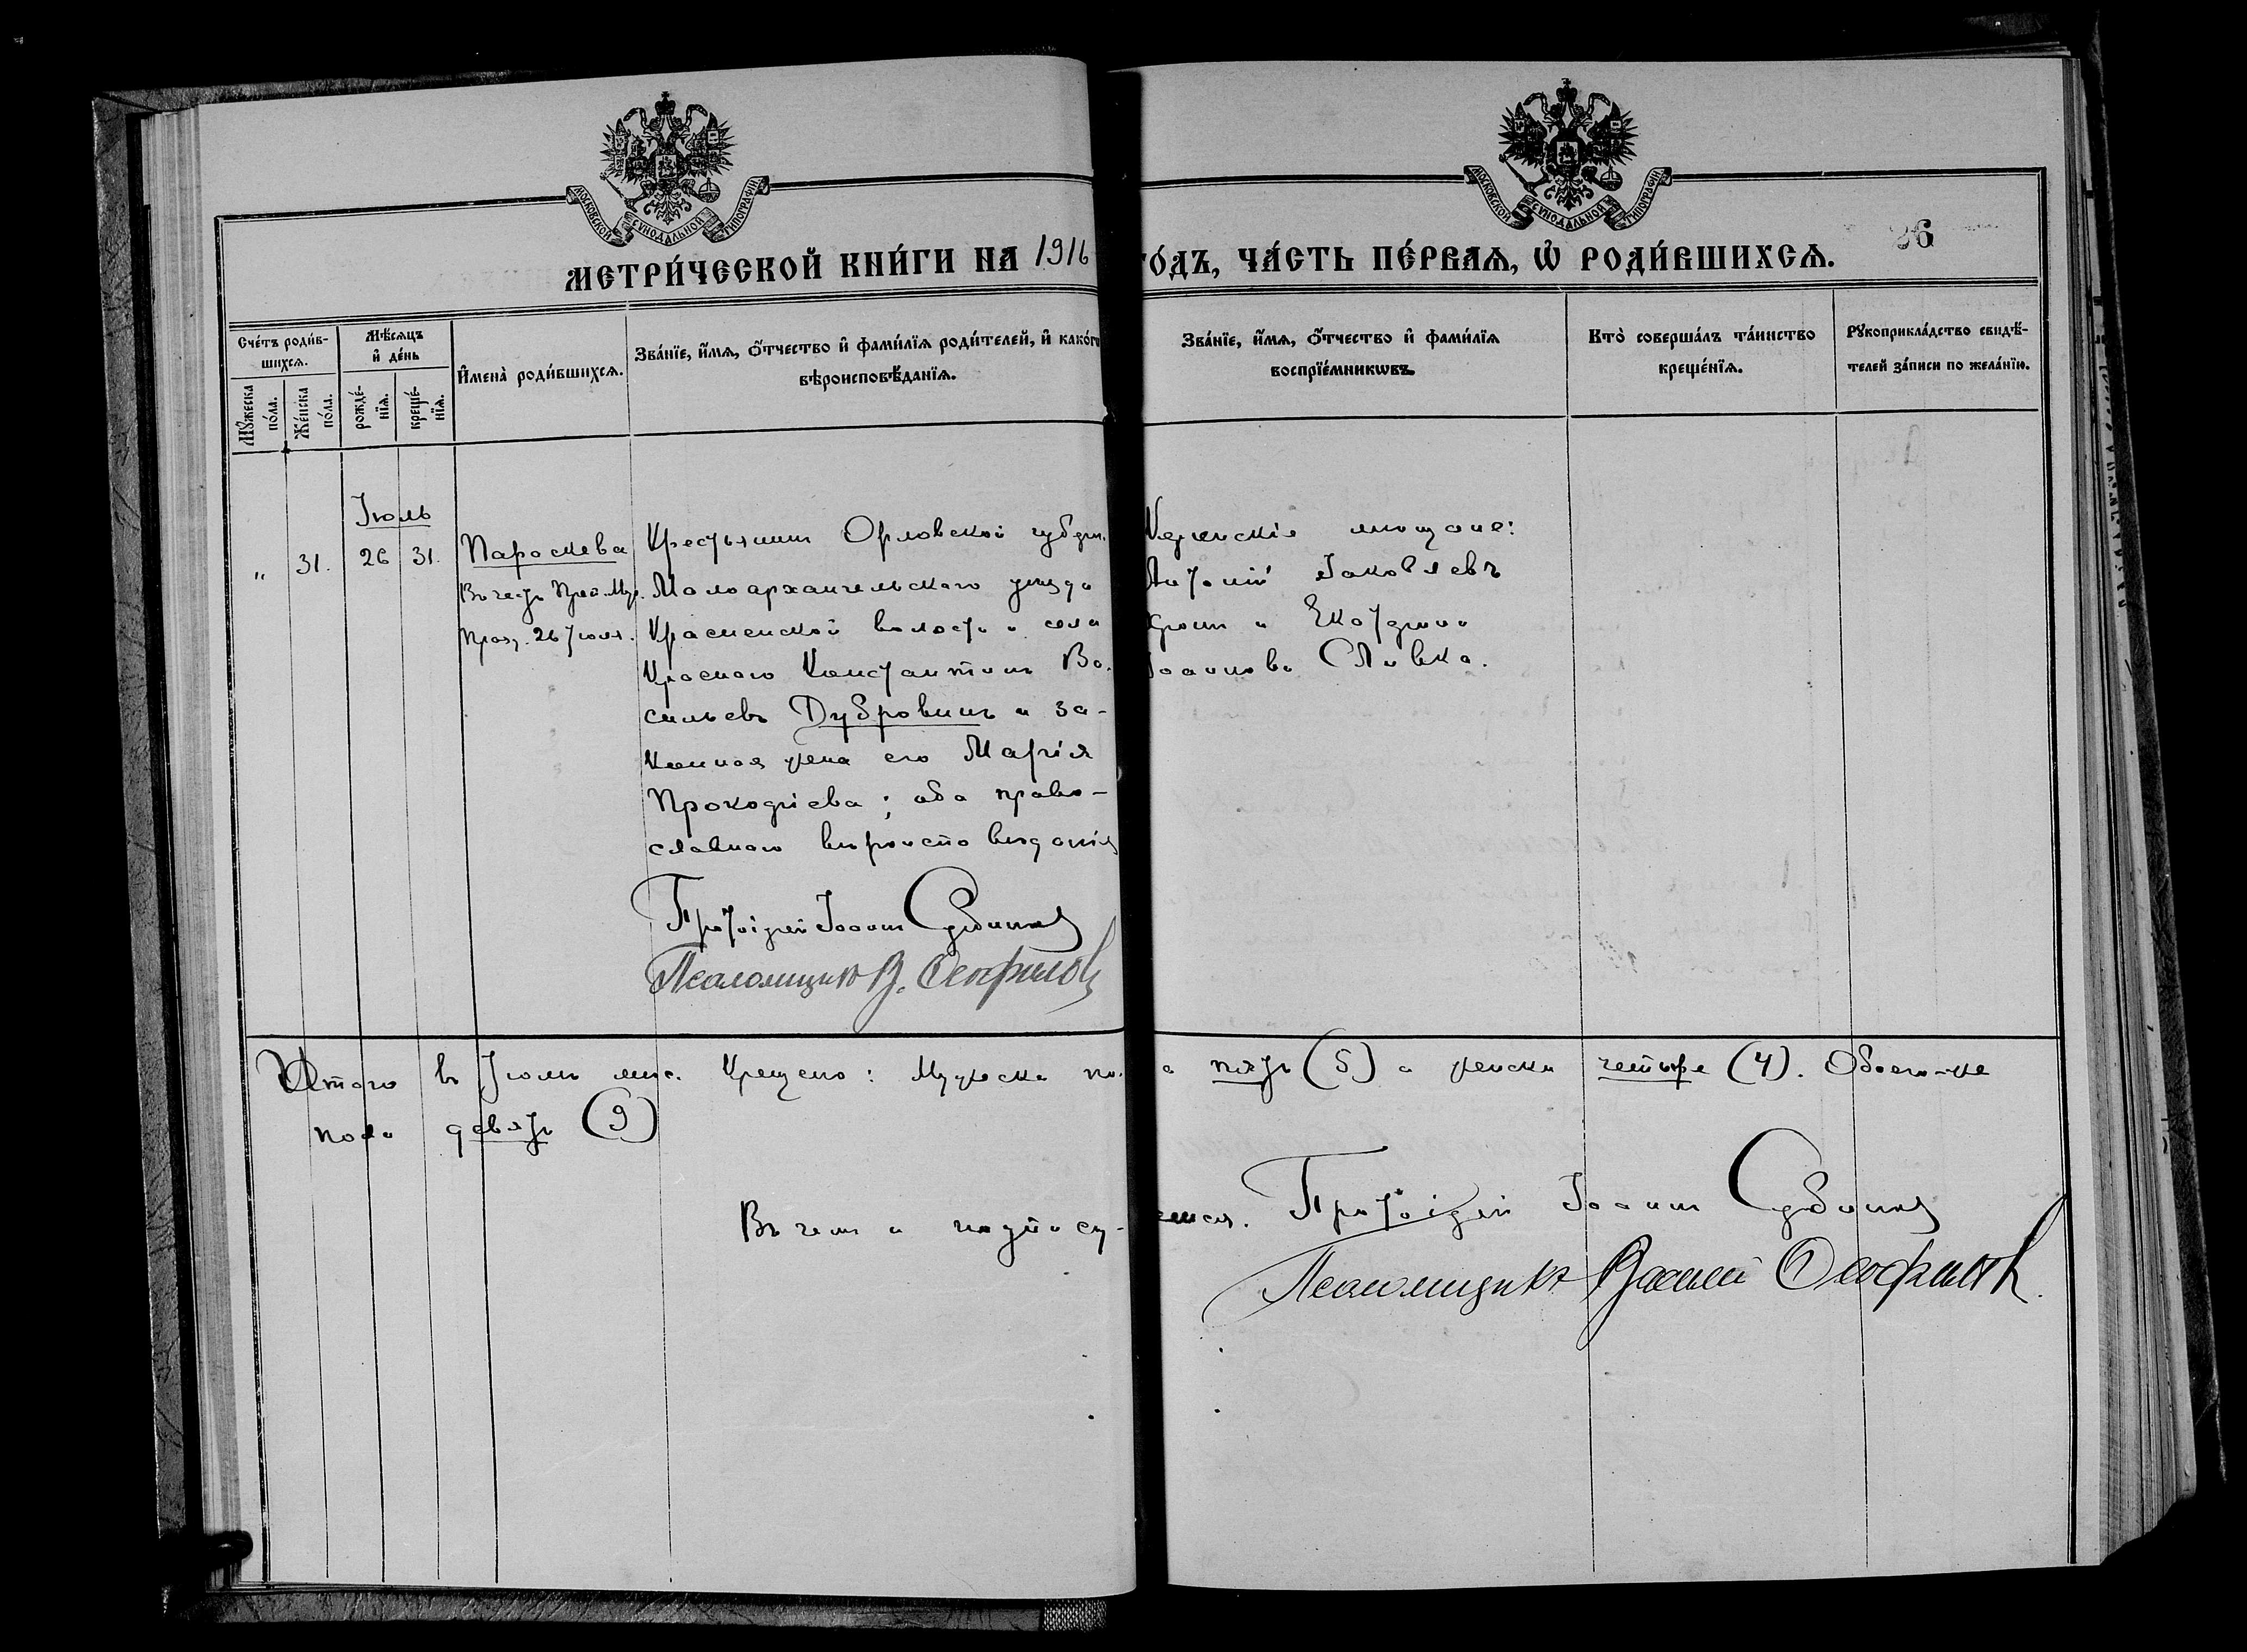 МОСКОВСКОЙ СѴНОДАЛЬНОЙ ТИПОГРАФІИ
МОСКОВСКОЙ СѴНОДАЛЬНОЙ ТИПОГРАФІИ
26
МЕТРИ́ЧЕСКОЙ КНИ́ГИ НА 1916
ГО́ДЪ, ЧА́СТЬ ПЕ́РВАѦ, Ѡ҆ РОДИ́ВШИХСѦ.
Сче́тъ роди́в-
шихсѧ.
Мꙋ́жеска по́ла.
Же́нска по́ла.
Мѣ́сѧцъ
и҆ де́нь
рожде́-
нїѧ.
креще́-
нїѧ.
И҆мена̀ роди́вшихсѧ.
Зва́нїе, и҆́мѧ, ѻ҆́тчество и҆ фами́лїѧ роди́телей, и҆ како́гѡ
вѣроисповѣ́данїѧ.
Зва́нїе, и҆́мѧ, ѻ҆́тчество и҆ фами́лїѧ
воспрїе́мникѡвъ.
Кто̀ соверша́лъ та́инство
креще́нїѧ.
Рꙋкоприкла́дство свидѣ́-
телей за́писи по жела́нїю.
Іюль
" 31. 26 31. Параскева
Въ честь Преп. Муч.
Празд. 26 Іюля.
Крестьянинъ Орловской губерн.
Малоархангельскаго уѣзда
Красненской волости и села
Краснаго Константинъ Ва-
сильевъ Дубровинъ и за-
конная жена его Марія
Прокофіева; оба право-
славнаго вѣроисповѣданія
Протоіерей Іоаннъ
Псаломщикъ В. Ѳеофиловъ
Керенскіе мѣщане:
Антоній Іаковлевъ
и Екатерина
Іоаннова Сливка.
Итого въ Іюлѣ мѣс. Крещено: Мужеска по-
ла пять (5) а женска четыре (4). Обоего-же
пола девять (9)
Въ чемъ и подпису-
емся. Протоіерей Іоаннъ
Псаломщикъ Василій Ѳеофиловъ.